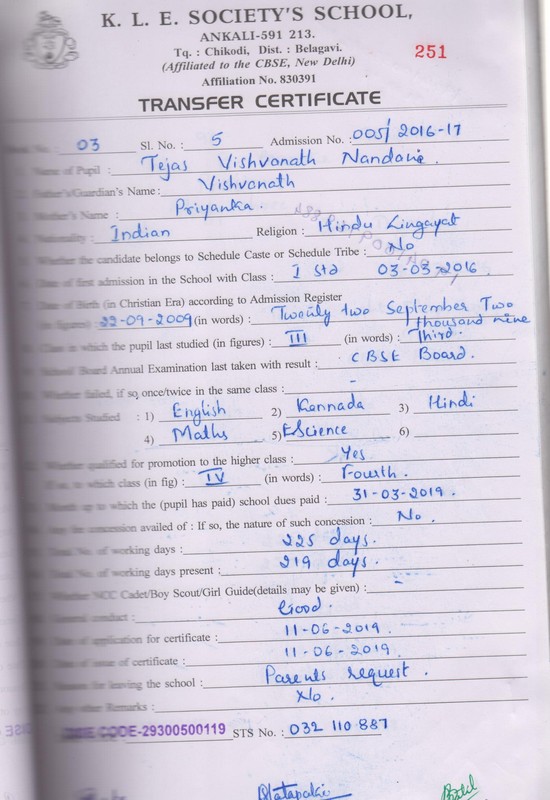 K. L. E. SOCIETY'S SCHOOL,
ANKALI-591 213.
Tq. : Chikodi, Dist. : Belagavi.
(Affiliated to the CBSE, New Delhi)
251
Affiliation No. 830391
TRANSFER CERTIFICATE
No. : 03 Sl. No. : 5 Admission No. : 005/2016-17
Name of Pupil : Tejas Vishvanath
Father's/Guardian's Name : Vishvanath
Mother's Name : Priyanka.
Nationality : Indian Religion : Hindu Lingayat
Whether the candidate belongs to Schedule Caste or Schedule Tribe : No
Date of first admission in the School with Class : I Std 03-03-2016
Date of Birth (in Christian Era) according to Admission Register
(in figures) : 22-09-2009 (in words) : Twenty two September Two thousand nine
Class in which the pupil last studied (in figures) : III (in words) : Third.
School/Board Annual Examination last taken with result : CBSE Board.
Whether failed, if so once/twice in the same class : -
Subjects Studied : 1) English 2) Kannada 3) Hindi
4) Maths 5) EScience 6)
Whether qualified for promotion to the higher class : Yes
If so, to which class (in fig) : IV (in words) : Fourth.
Month up to which the (pupil has paid) school dues paid : 31-03-2019.
Any fee concession availed of : If so, the nature of such concession : No.
Total No. of working days : 225 days.
Total No. of working days present : 219 days.
Whether NCC Cadet/Boy Scout/Girl Guide(details may be given) : -
General conduct : Good.
Date of application for certificate : 11-06-2019.
Date of issue of certificate : 11-06-2019.
Reason for leaving the school : Parents request.
Any other Remarks : No.
DISE CODE-29300500119 STS No. : 032 110 887